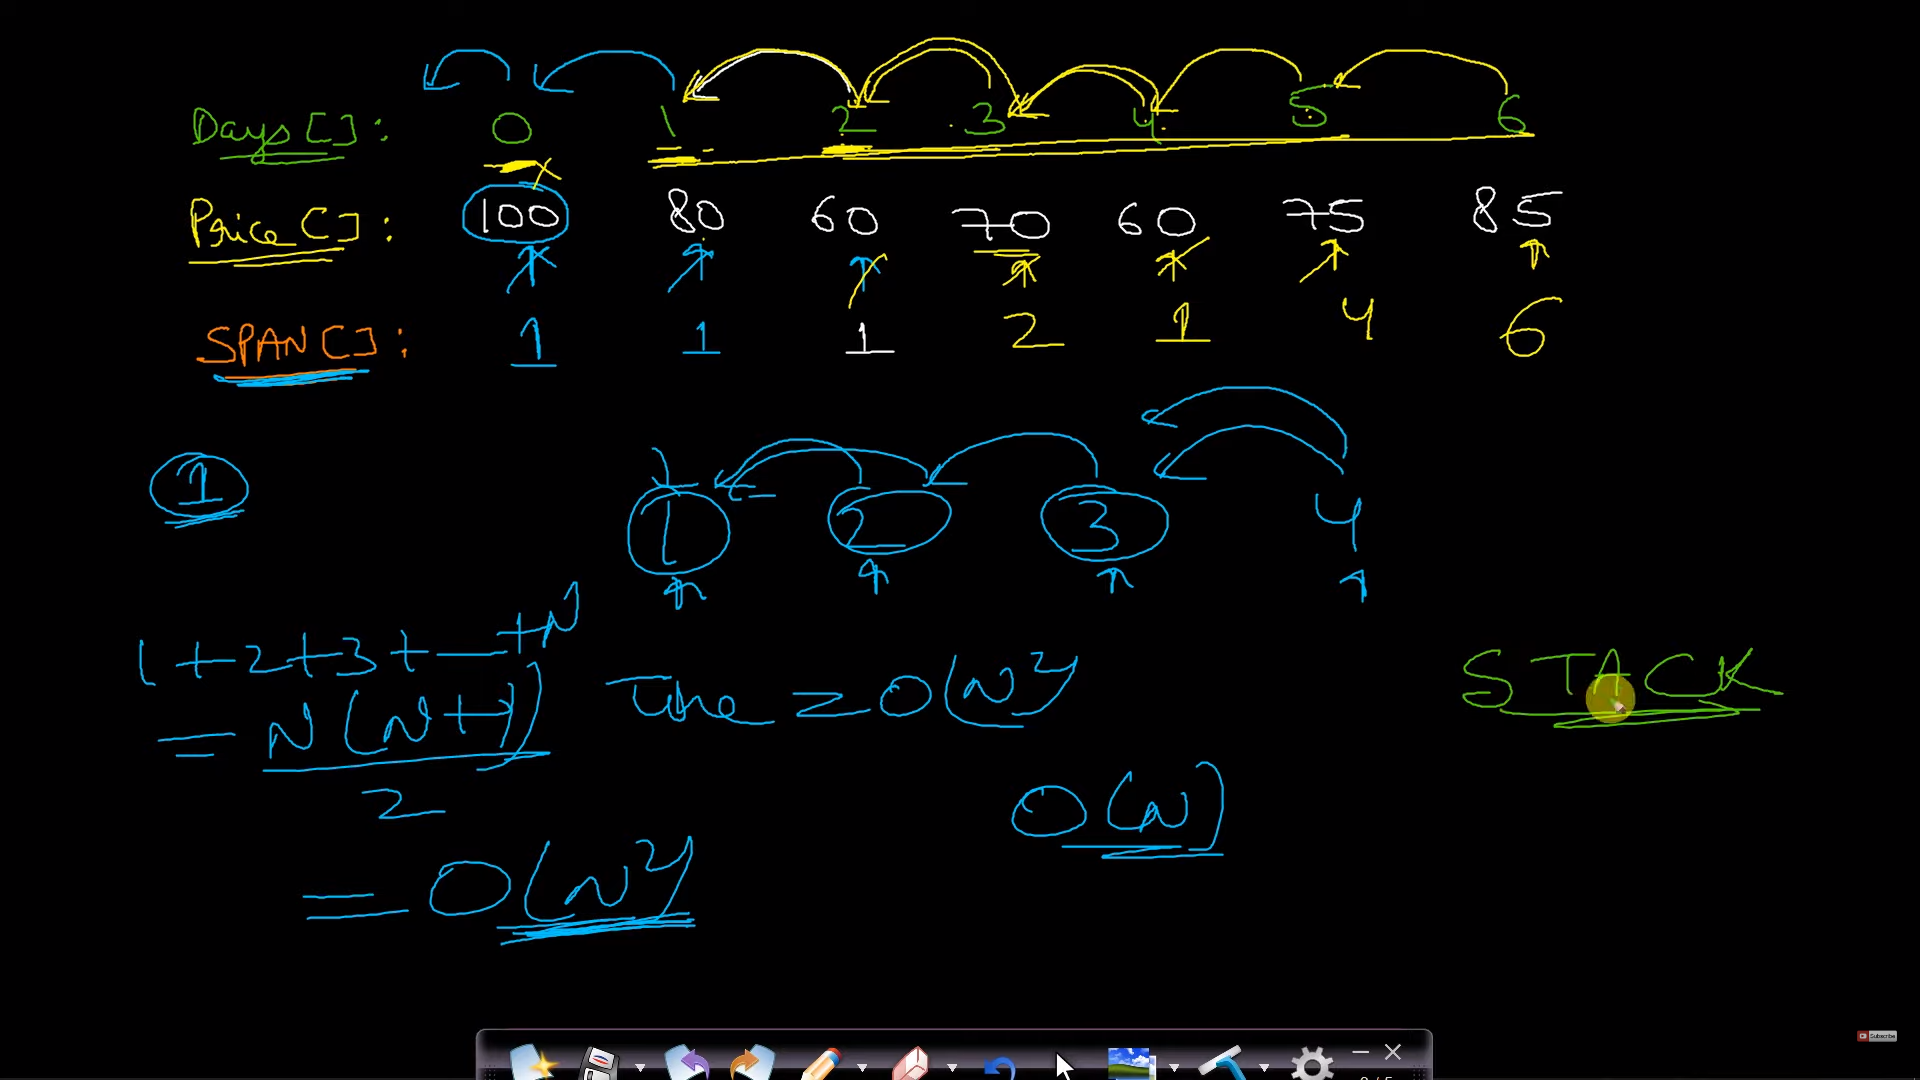 Days[]: 0 1 2 3 4 5 6
Price[]: 100 80 60 70 60 75 85
SPAN[]: 1 1 1 2 1 4 6
1
1 2 3 4
1+2+3+—+N
= N(N+1)
2
= O(N²)
Time = O(N²)
O(N)
STACK
Subscribe